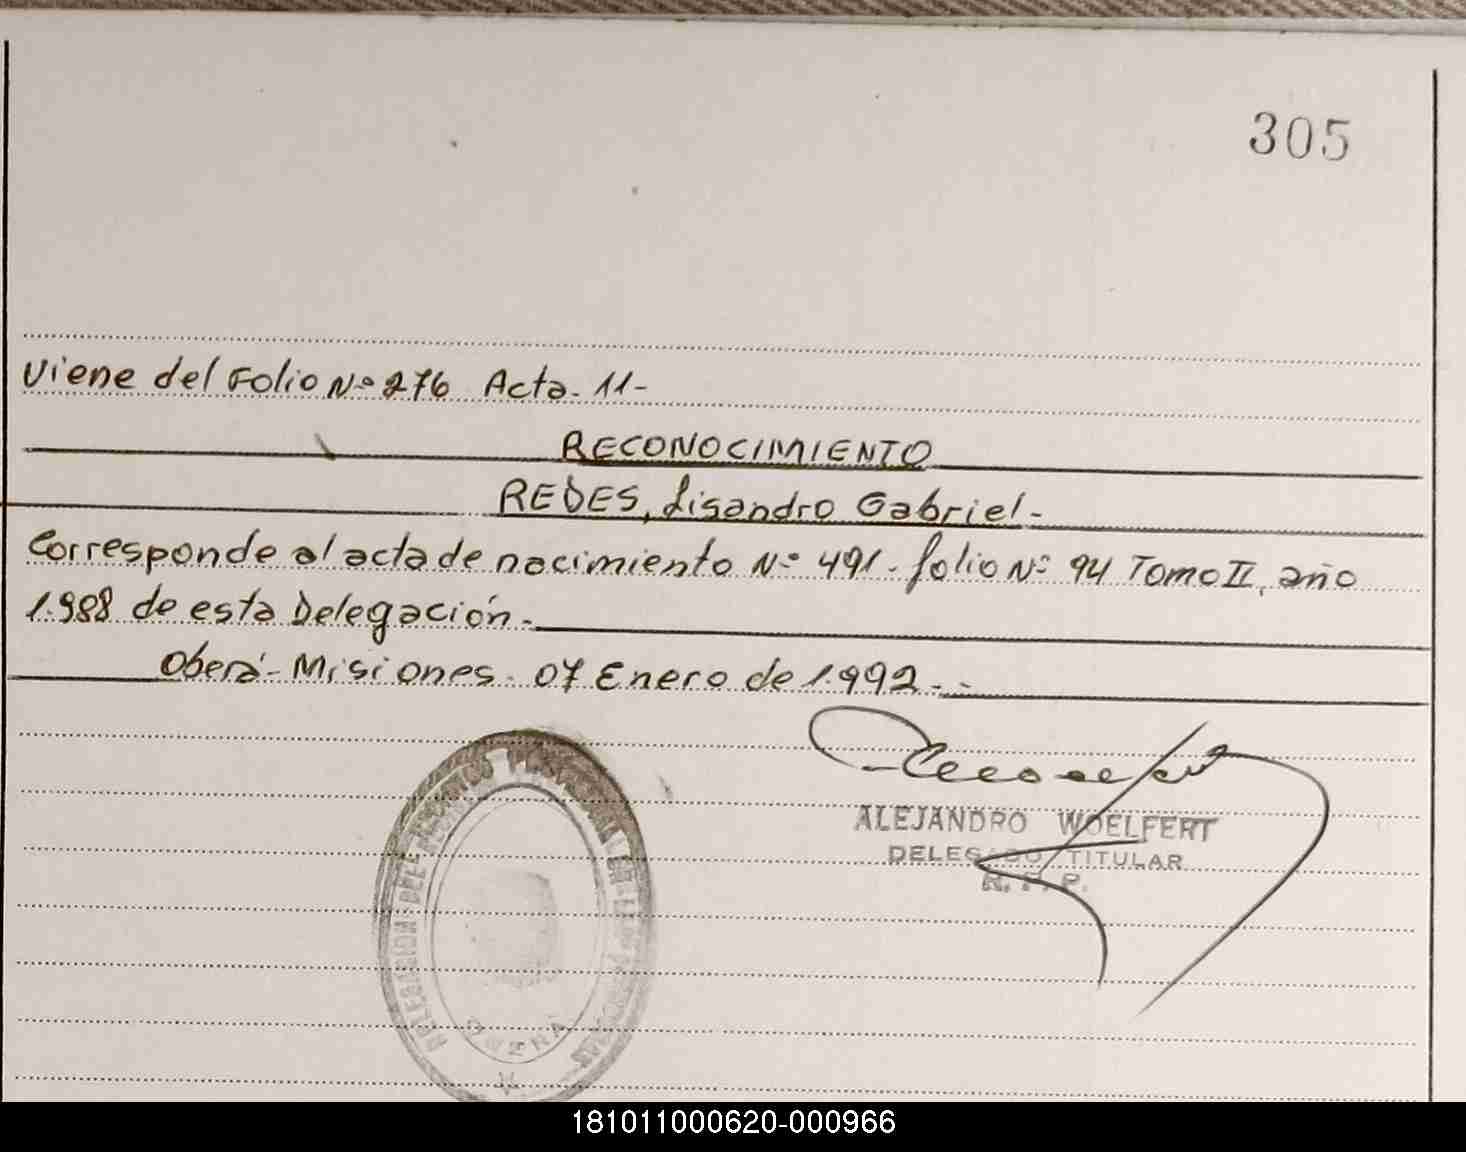 305
Viene del Folio Nº 276 Acta. 11-
RECONOCIMIENTO
REDES, Lisandro Gabriel.-
Corresponde al acta de nacimiento Nº 491. folio Nº 94 Tomo II, año
1.988 de esta Delegación.-
Oberá- Misiones. 07 Enero de 1.992.-
ALEJANDRO WOELFERT
DELEGADO TITULAR
R. P. P.
DELEGACION DEL REGISTRO PROVINCIAL DE LAS PERSONAS
OBERA
181011000620-000966